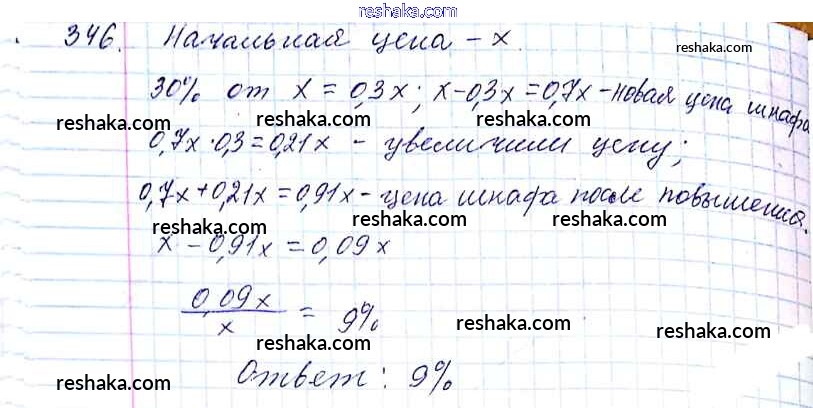 reshaka.ru
346. Начальная цена - x.
reshaka.com
30% от x = 0,3x; x-0,3x=0,7x - новая цена шкафа
reshaka.com reshaka.com reshaka.com
0,7x·0,3=0,21x - увеличили цену;
0,7x+0,21x=0,91x - цена шкафа после повышения.
reshaka.com reshaka.com reshaka.com
x - 0,91x = 0,09x
reshaka.com reshaka.com
0,09x
x = 9%
reshaka.com reshaka.com
Ответ: 9%
reshaka.com reshaka.com
reshaka.ru